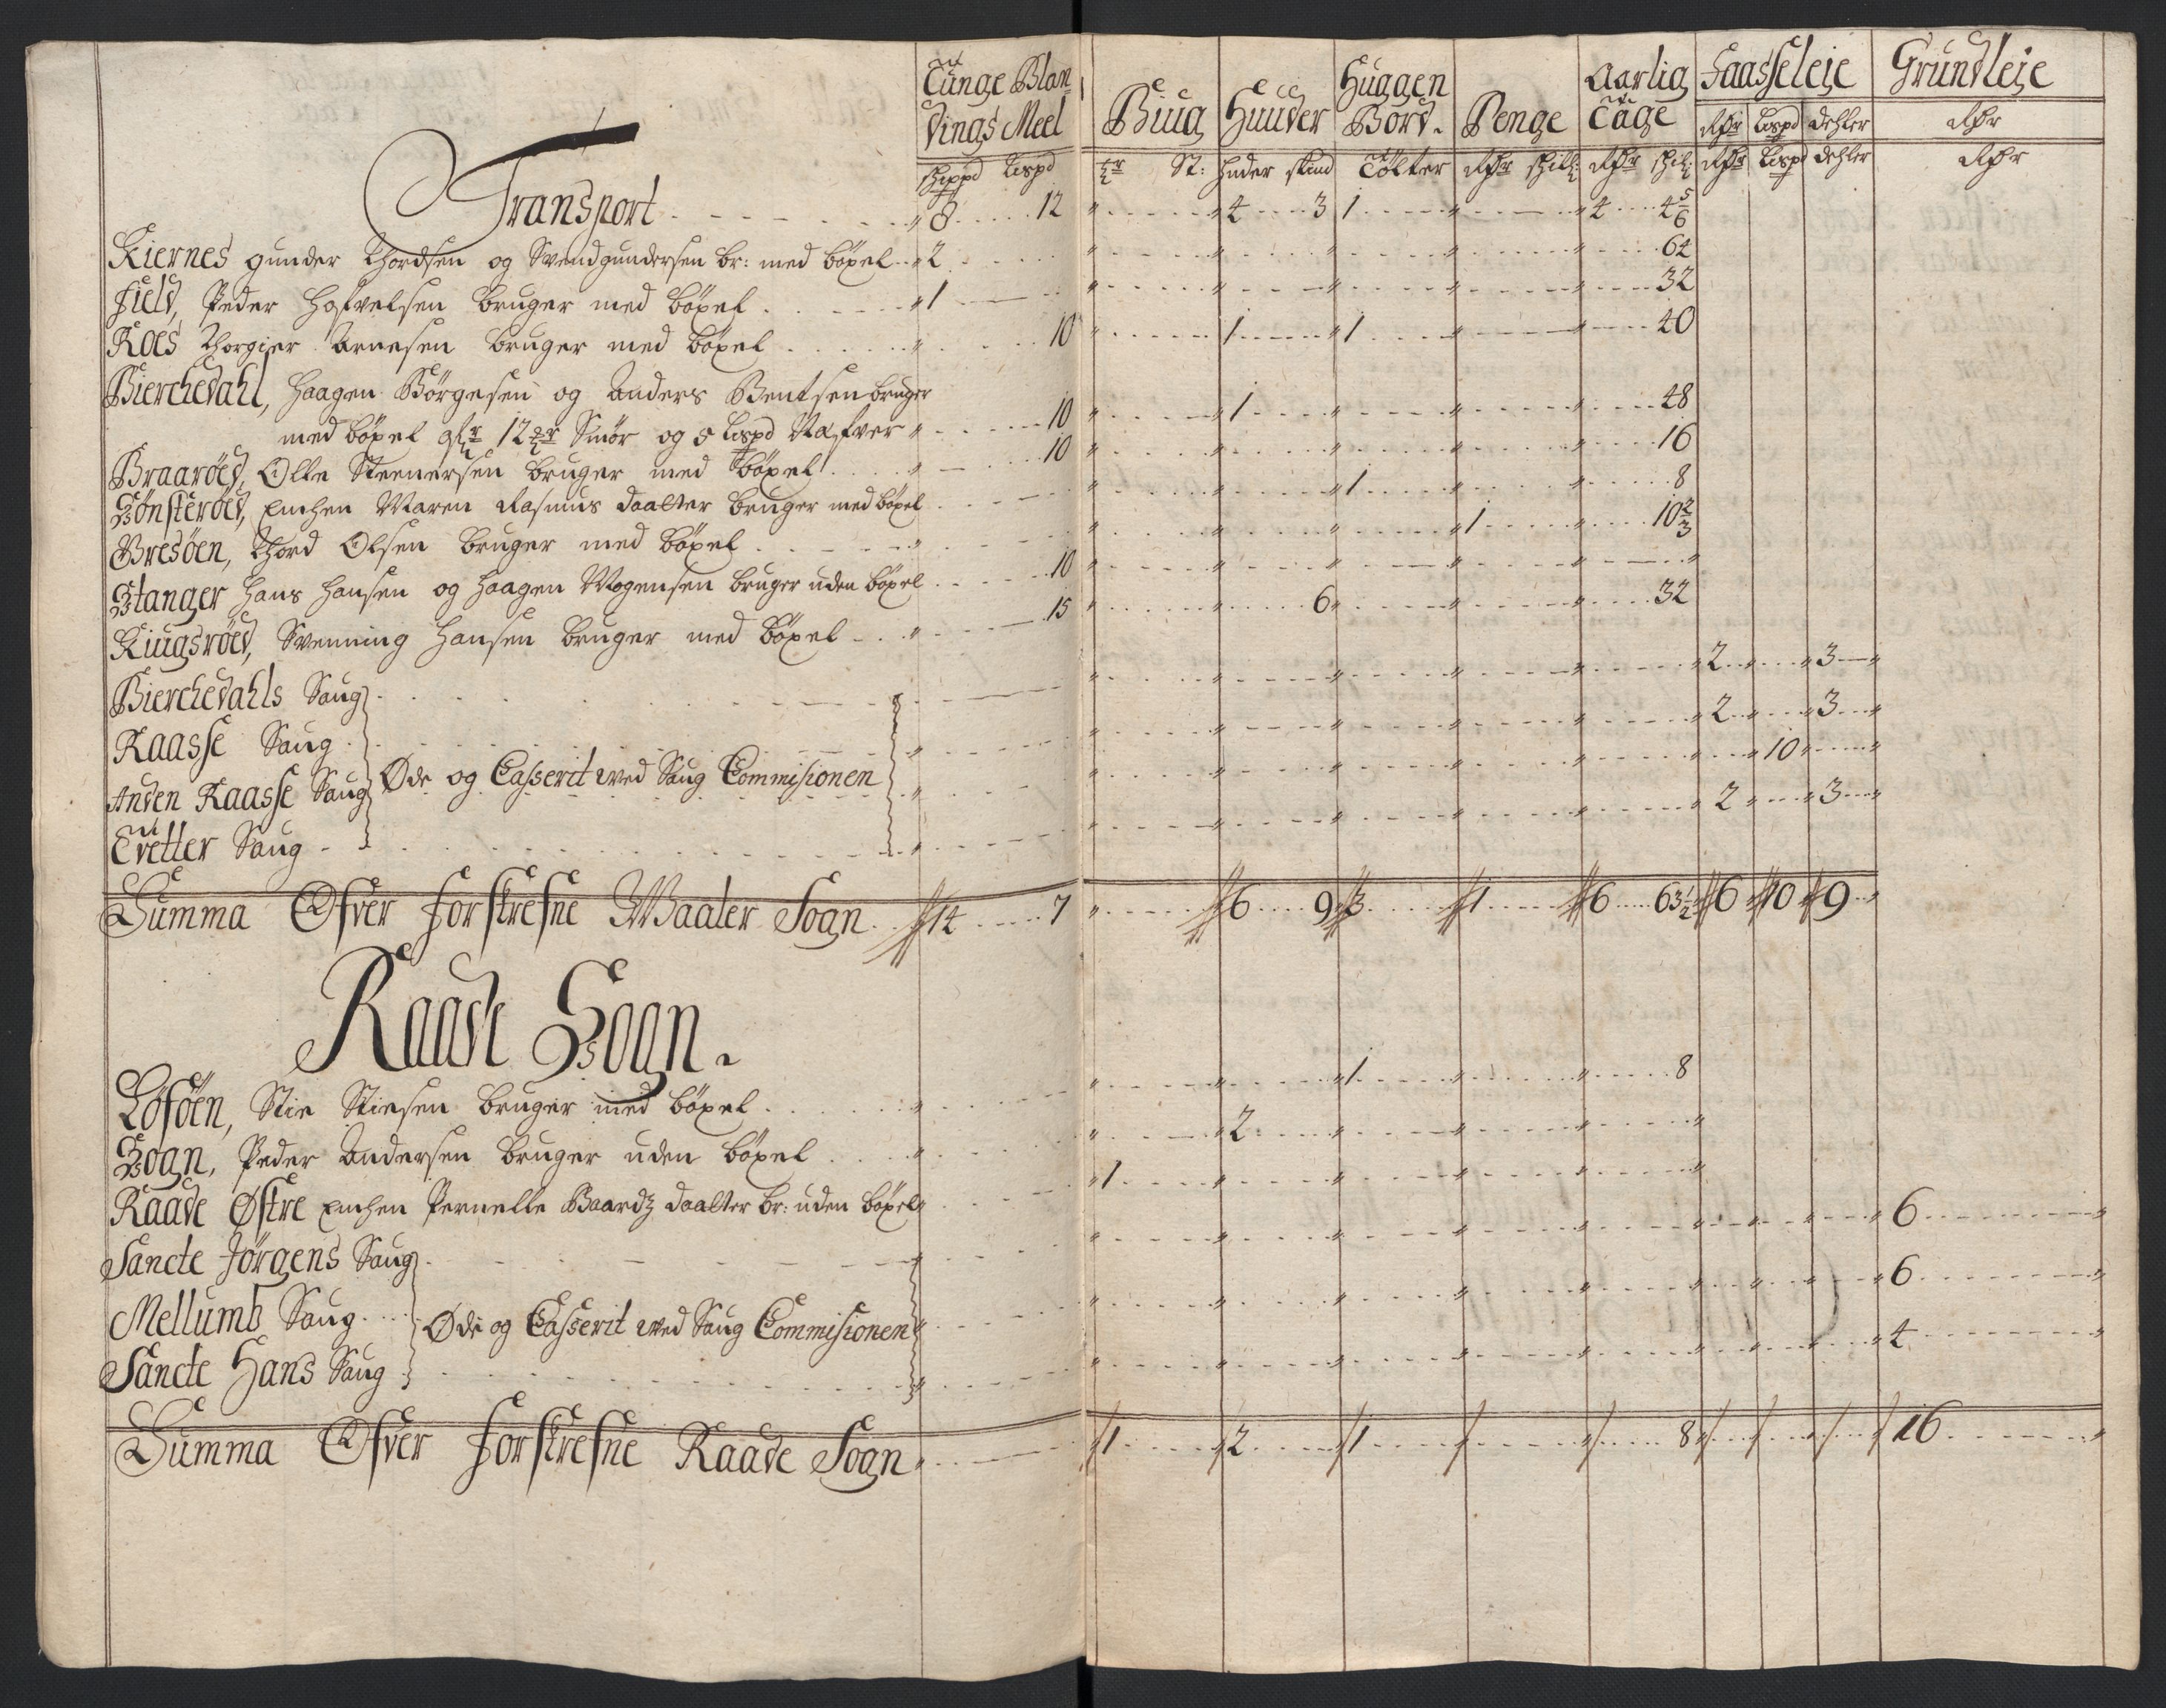 Tunge Blan
dings Meel
Biug Huuder Huggen Bord. Penge Aarlig Tage Faasseleje Grundleje
Rdr Lispd dehler Rdr
Skippd Lispd tr St: huder skind Tølter Rdr skill: Rdr skil: Rdr Lispd dehler Rdr
Transport 8 12 4 3 1 4 4 5/6
Kiernes gunder Thordsen og Svendgundersen br: med böxel 2 64
Field, Peder bruger med böxel 1 32
Roes Thorgier Arnesen bruger med böxel 10 1 1 40
Bierchedahl, Haagen Börgesen og Anders Bentsen bruger
med böxel 12 Smör og 5 Lispd 10 1 48
Braaröed, Olle Steenersen bruger med böxel 10 16
Sönsteröed, Enchen Maren Rasmus daatter bruger med böxel 1 8
Bresöen, Thord Olsen bruger med böxel 1 10 2/3
Stanger Hans Hansen og Haagen Mogensen bruger uden böxel 10
Kiugsröed, Svenning Hansen bruger med böxel 15 6 32
Bierchedahls Saug 2 3
Kaasse Saug 2 3
Øde og Casserit wed Saug Commisionen
Anden Kaasse Saug 10
Tvetter Saug 2 3
Summa Ofver Forskrefne Waaler Sogn 14 7 6 9 3 1 6 63 1/2 6 10 9
Raade Sogn.
Löföen, Stie Stiesen bruger med böxel 1 8
Sogn, Peder Andersen bruger uden böxel 2
Raade Østre Enchen Pernelle Baardz daatter br: uden böxel 1
Sancte Jörgens Saug 6
Mellumb Saug 6
Øde og Casserit wed Saug Commisionen
Sancte Hans Saug 4
Summa Ofver Forskrefne Raade Sogn 1 2 1 8 16